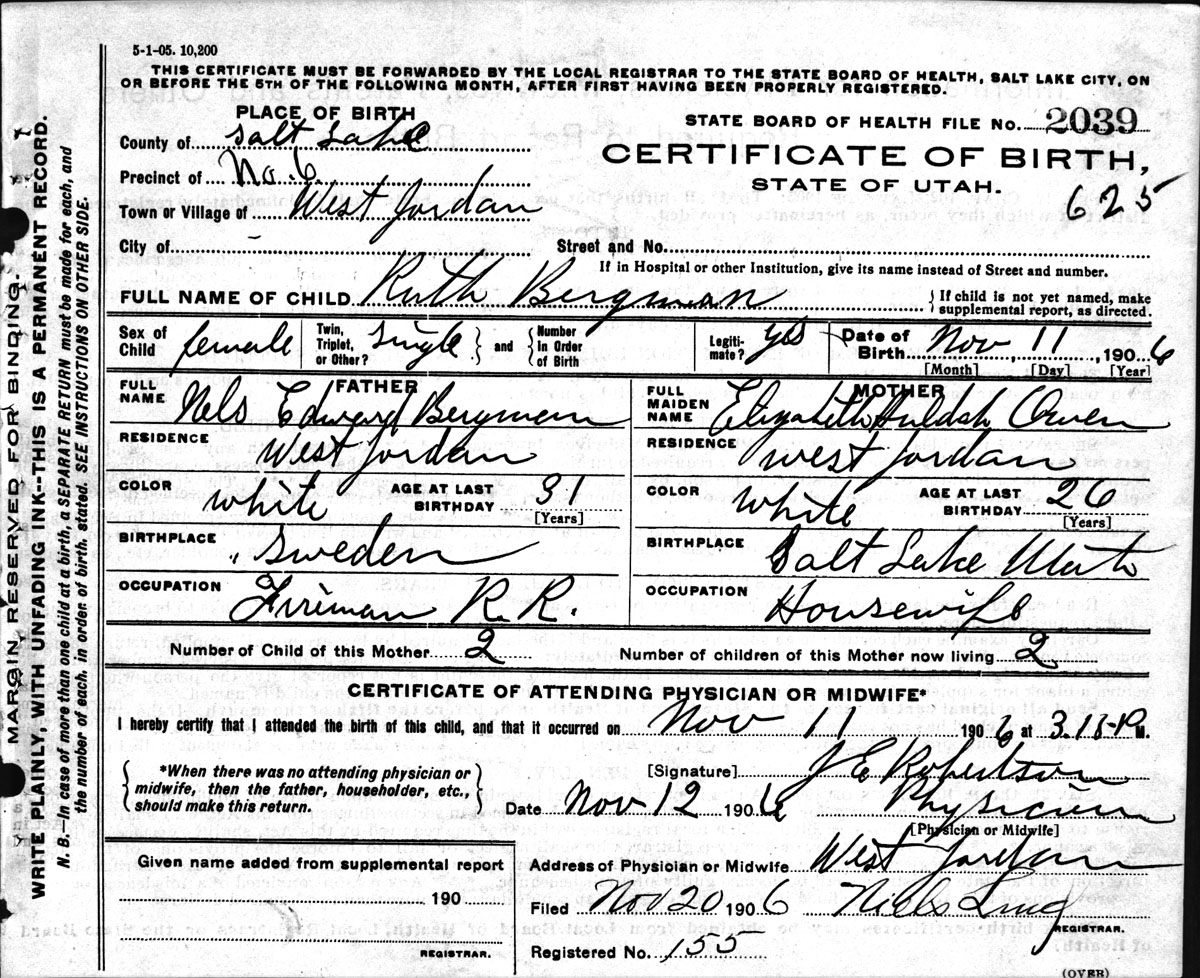 5-1-05. 10,200
THIS CERTIFICATE MUST BE FORWARDED BY THE LOCAL REGISTRAR TO THE STATE BOARD OF HEALTH, SALT LAKE CITY, ON
OR BEFORE THE 5TH OF THE FOLLOWING MONTH, AFTER FIRST HAVING BEEN PROPERLY REGISTERED.
PLACE OF BIRTH
County of Salt Lake
Precinct of No. 6
Town or Village of West Jordan
STATE BOARD OF HEALTH FILE No. 2039
CERTIFICATE OF BIRTH,
STATE OF UTAH.
625
City of - Street and No.
If in Hospital or other Institution, give its name instead of Street and number.
FULL NAME OF CHILD Ruth Bergman { If child is not yet named, make
supplemental report, as directed.
Sex of Child female Twin, Triplet, or Other? Single } and { Number in Order of Birth Legiti-mate? yes Date of Birth Nov, 11, 1906
[Month] [Day] [Year]
FATHER
FULL NAME Nels Edward Bergman
RESIDENCE West Jordan
COLOR white AGE AT LAST BIRTHDAY 31
[Years]
BIRTHPLACE Sweden
OCCUPATION Fireman R. R.
MOTHER
FULL MAIDEN NAME Elizabeth Huldah Owen
RESIDENCE West Jordan
COLOR white AGE AT LAST BIRTHDAY 26
[Years]
BIRTHPLACE Salt Lake Utah
OCCUPATION Housewife
Number of Child of this Mother 2 Number of children of this Mother now living 2
CERTIFICATE OF ATTENDING PHYSICIAN OR MIDWIFE*
I hereby certify that I attended the birth of this child, and that it occurred on Nov 11 1906 at M.
{ *When there was no attending physician or
midwife, then the father, householder, etc.,
should make this return. }
[Signature] J E Robertson
Date Nov 12 1906 Physician
[Physician or Midwife]
Given name added from supplemental report
190
REGISTRAR.
Address of Physician or Midwife West Jordan
Filed Nov 20 1906 Niels
REGISTRAR.
Registered No. 155
(OVER)
MARGIN RESERVED FOR BINDING.
WRITE PLAINLY, WITH UNFADING INK--THIS IS A PERMANENT RECORD.
N. B.--In case of more than one child at a birth, a SEPARATE RETURN must be made for each, and
the number of each, in order of birth, stated. SEE INSTRUCTIONS ON OTHER SIDE.